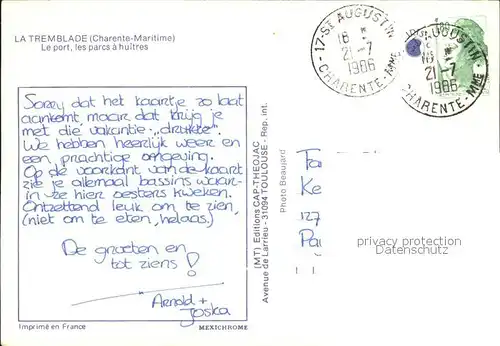 LA TREMBLADE (Charente-Maritime)
Le port, les parcs à huîtres
17-ST AUGUSTIN
16 H
21-7
1986
CHARENTE-MME
AUGUSTIN
21-7
1986
CHARENTE-MME
Sorry dat het kaartje zo laat
aankomt, maar dat krijg je
met die vakantie-"drukte"
We hebben heerlijk weer en
een prachtige omgeving.
Op de voorkant van de kaart
zie je allemaal bassins waar-
in ze hier oesters kweken.
Ontzettend leuk om te zien,
(niet om te eten, helaas.)
De groeten en
tot ziens!
Arnold +
Joska
(MT) Editions CAP-THEOJAC
Avenue de Larrieu - 31094 TOULOUSE - Rep. int.
Photo Beaujard
Tra
Ke
127
Pai
privacy protection
Datenschutz
Imprimé en France
MEXICHROME